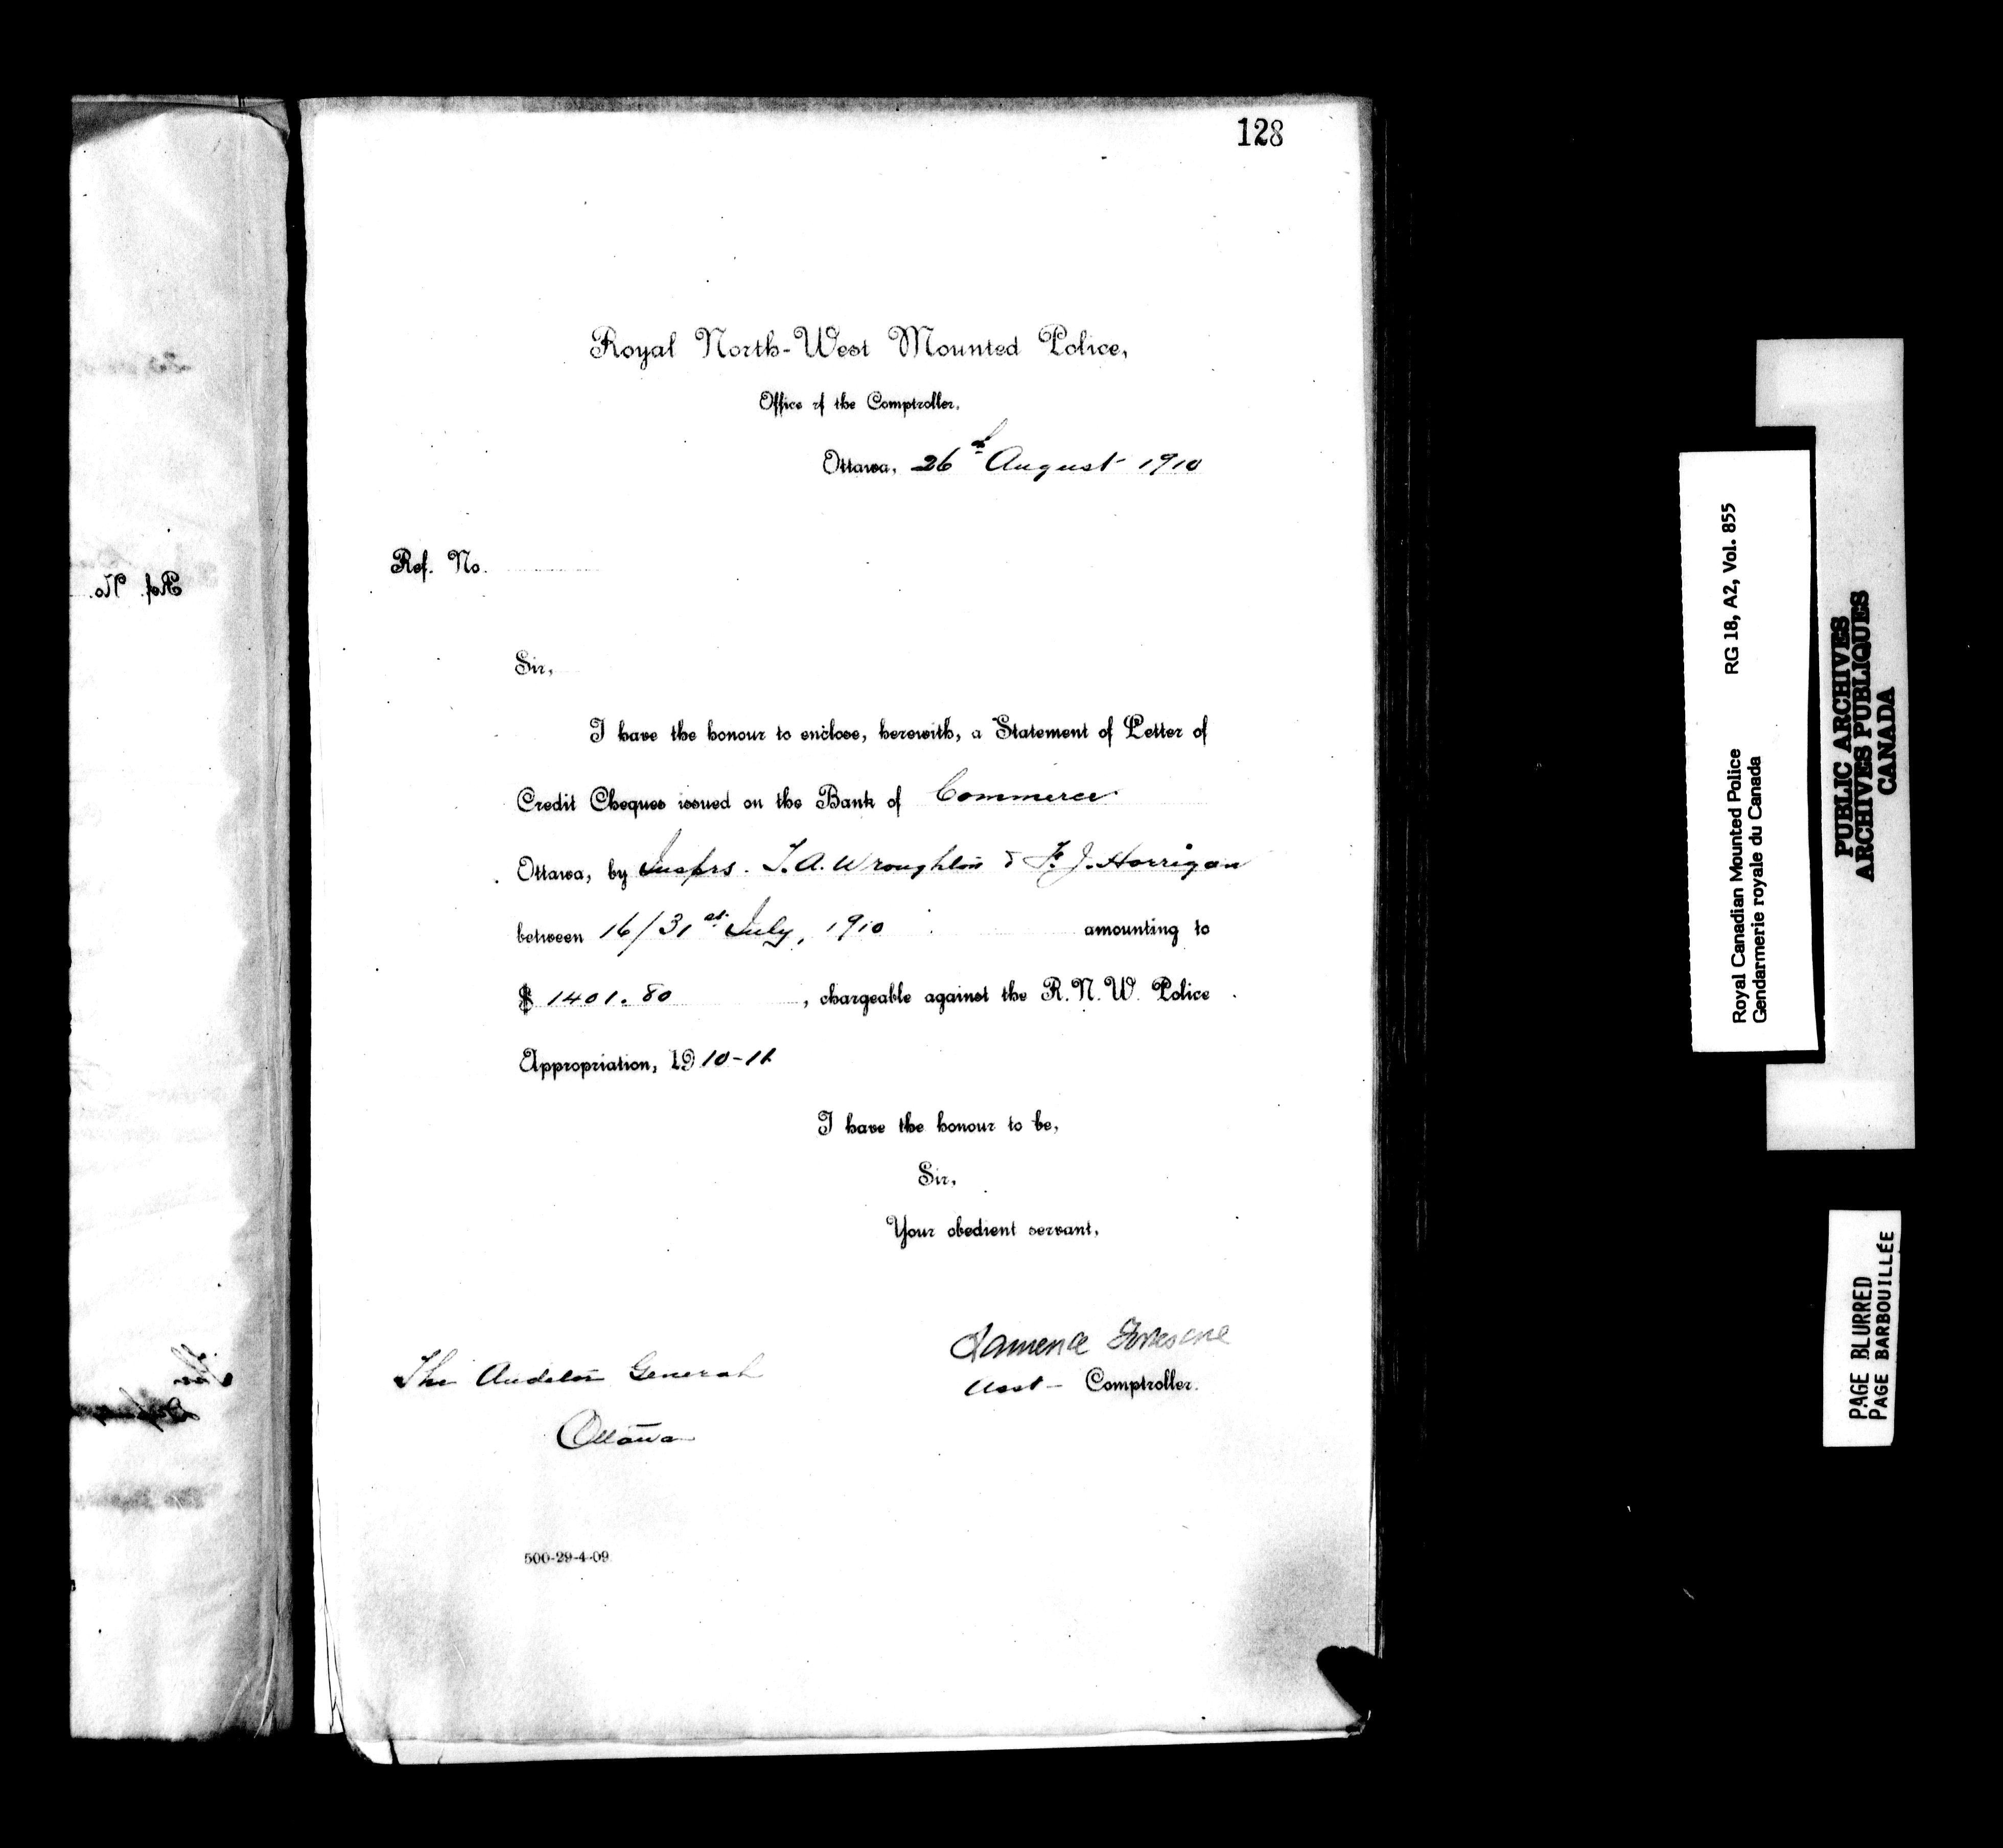 128
Royal North-West Mounted Police,
Office of the Comptroller,
Ottawa, 26th August 1910
Ref. No.
Sir,
I have the honour to enclose, herewith, a Statement of Letter of
Credit Cheques issued on the Bank of Commerce
Ottawa, by Insprs. T. A. Wroughton & F. J. Horrigan
between 16/31st July, 1910 amounting to
$ 1401.80 , chargeable against the R. N. W. Police
Appropriation, 1910-11
I have the honour to be,
Sir,
Your obedient servant,
Laurence Fortescue
Asst- Comptroller.
The Auditor General
Ottawa
500-29-4-09
Ref. No.
Royal Canadian Mounted Police RG 18, A2, Vol. 855
Gendarmerie royale du Canada
PUBLIC ARCHIVES
ARCHIVES PUBLIQUES
CANADA
PAGE BLURRED
PAGE BARBOUILLÉE